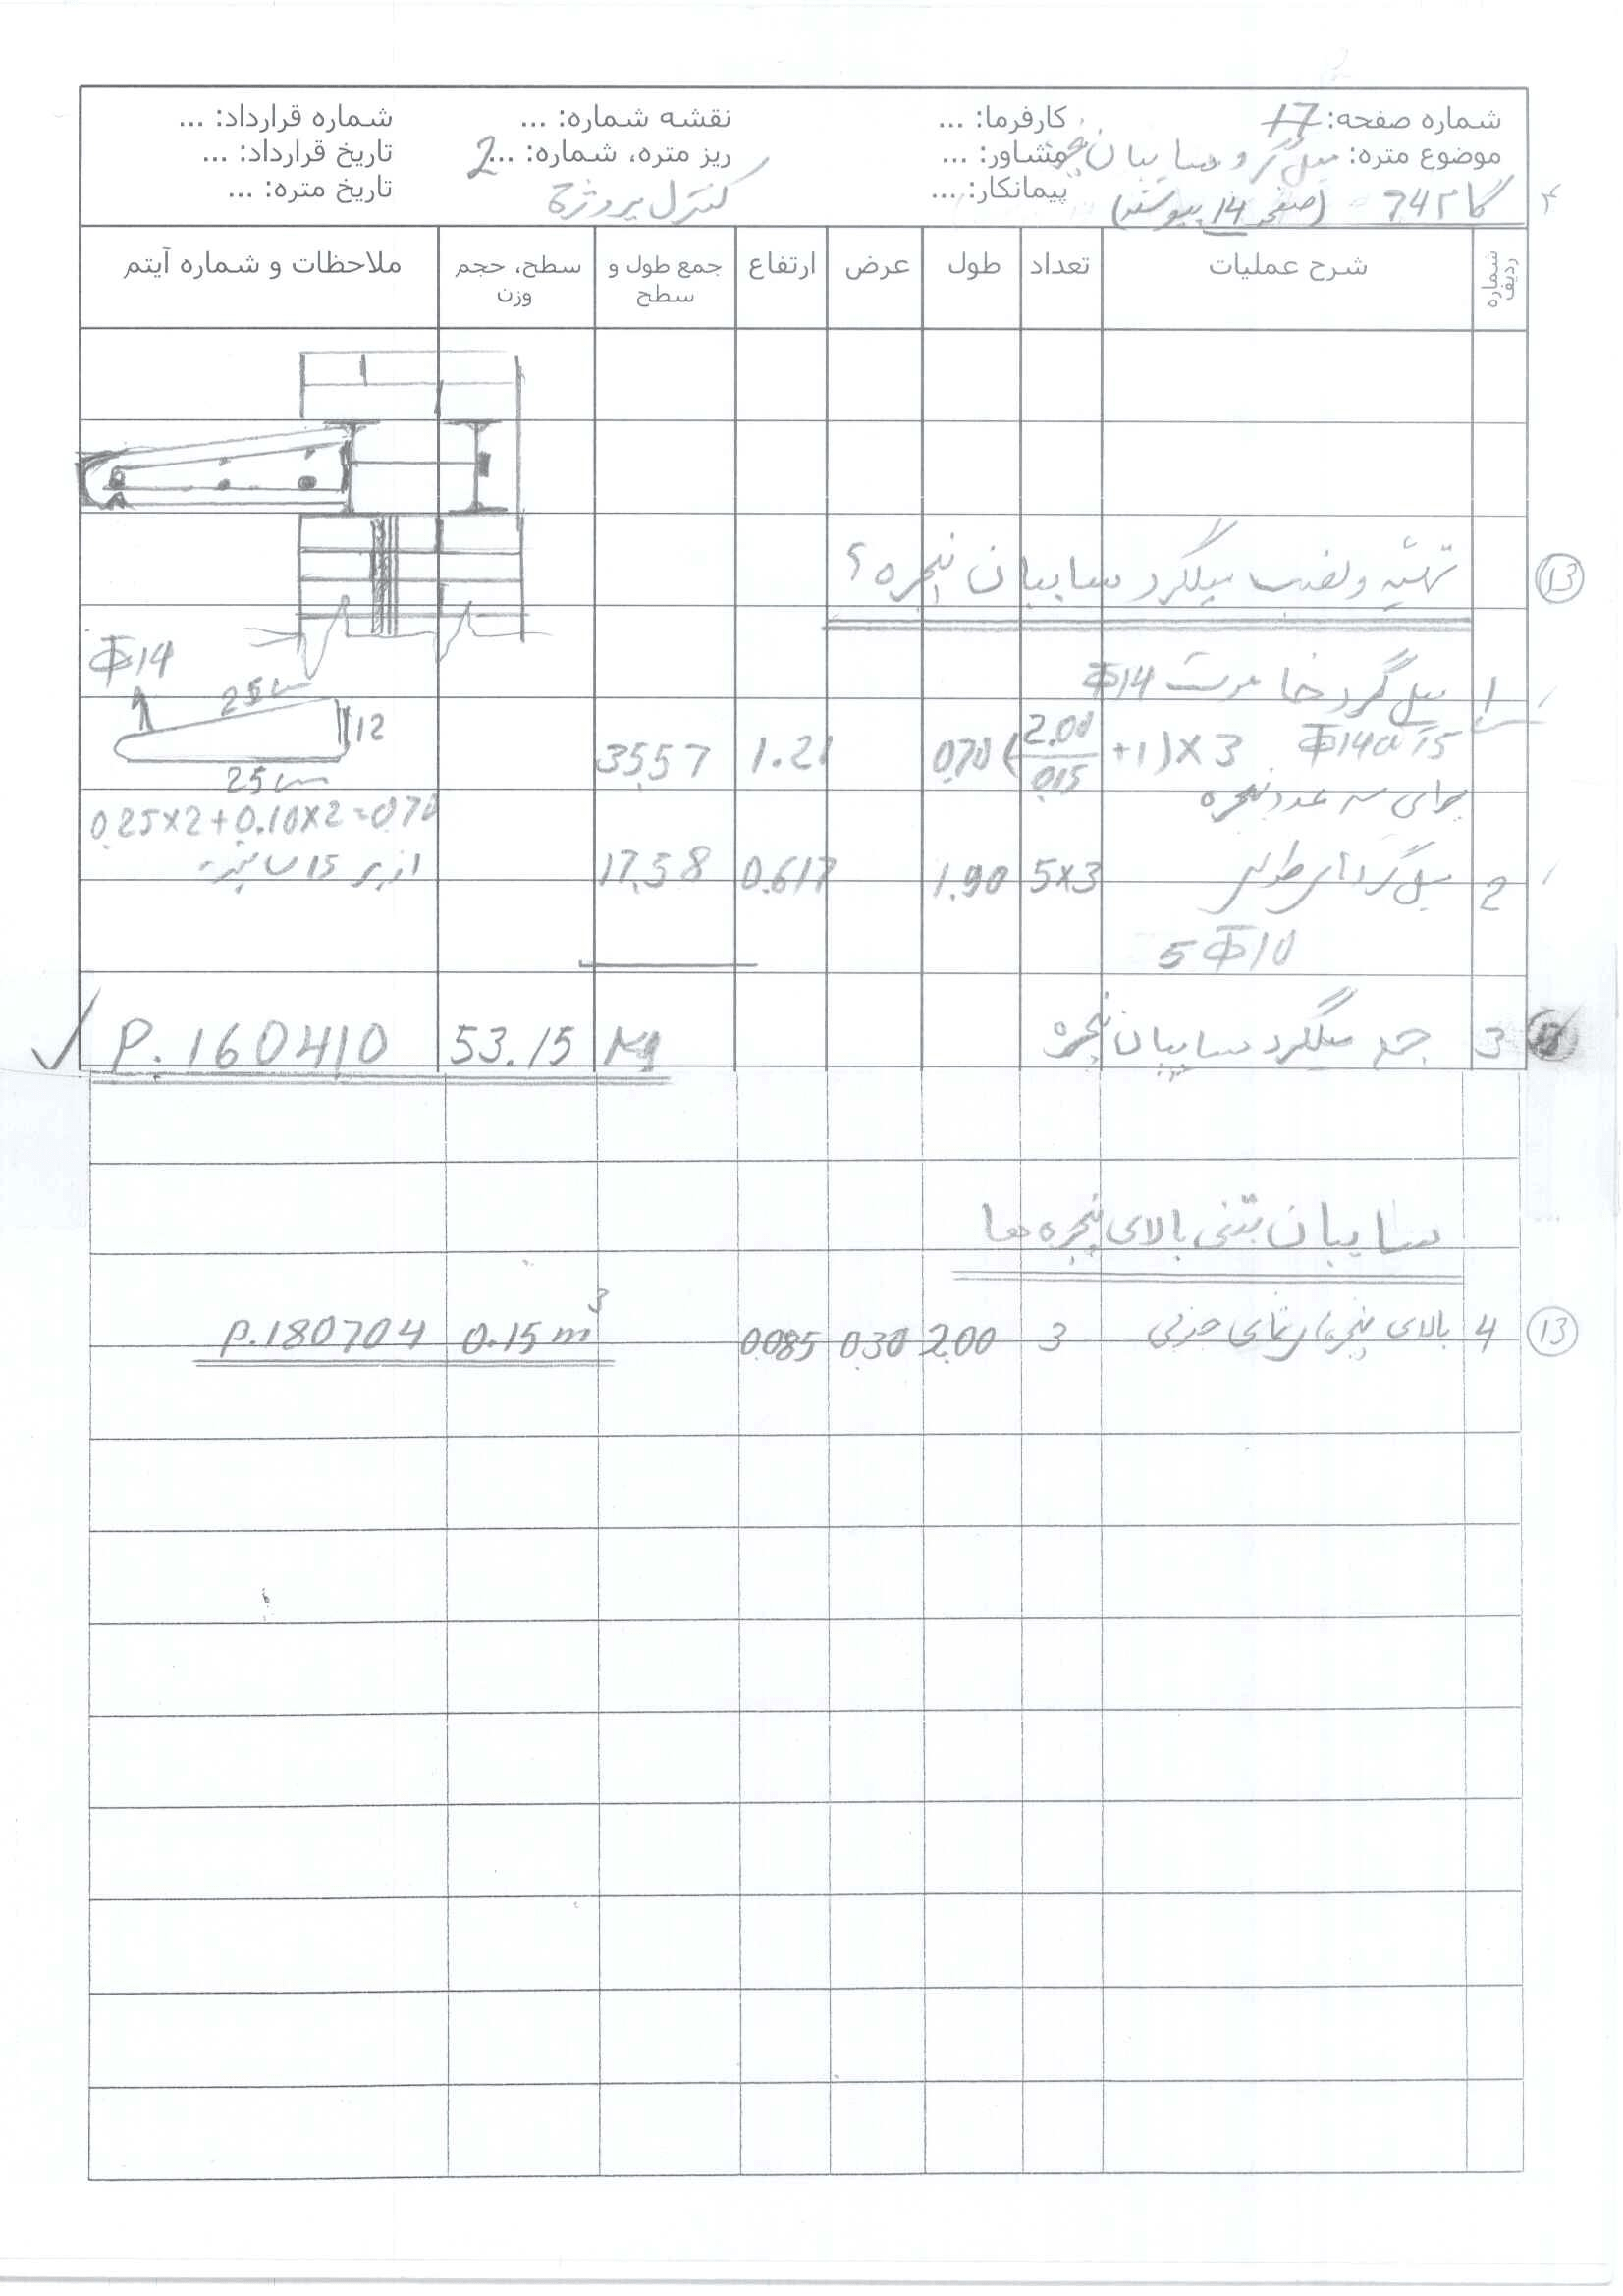 شماره صفحه: 17 کارفرما: ... نقشه شماره: ... شماره قرارداد: ...
موضوع متره: میل گرد سایبان پنجره مشاور: ... ریز متره، شماره: ...2 تاریخ قرارداد: ...
گام 94 (صفحه 14 پیوسته) پیمانکار: ... کنترل پروژه تاریخ متره: ...
شماره ردیف شرح عملیات تعداد طول عرض ارتفاع جمع طول و سطح سطح، حجم وزن ملاحظات و شماره آیتم
13 تهیه و نصب میلگرد سایبان پنجره
1 میل گرد خاموت Φ14
Φ14@15 (2.00/0.15 +1)×3 0.70 1.21 35.57
برای سه عدد پنجره
Φ14
25cm
12
25cm
0.25×2+0.10×2=0.70
2 میل گردهای طولی 5×3 1.90 0.617 17.58
5Φ10
3 جمع میلگرد سایبان پنجره Kg 53.15 P.160410
سایبان بتنی بالای پنجره ها
13 4 بالای پنجره نمای جنوبی 3 2.00 0.30 0.085 0.15 m³ P.180704